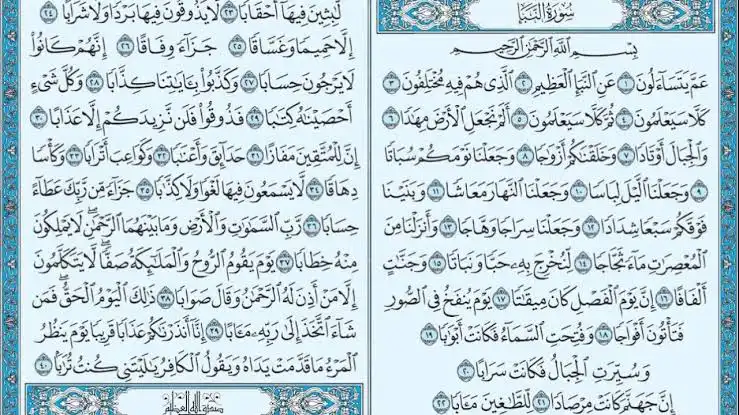 سورة النبإ
بِسْمِ اللَّهِ الرَّحْمَٰنِ الرَّحِيمِ
عَمَّ يَتَسَاءَلُونَ ١ عَنِ النَّبَإِ الْعَظِيمِ ٢ الَّذِي هُمْ فِيهِ مُخْتَلِفُونَ ٣
كَلَّا سَيَعْلَمُونَ ٤ ثُمَّ كَلَّا سَيَعْلَمُونَ ٥ أَلَمْ نَجْعَلِ الْأَرْضَ مِهَٰدًا ٦
وَالْجِبَالَ أَوْتَادًا ٧ وَخَلَقْنَٰكُمْ أَزْوَٰجًا ٨ وَجَعَلْنَا نَوْمَكُمْ سُبَاتًا
٩ وَجَعَلْنَا الَّيْلَ لِبَاسًا ١٠ وَجَعَلْنَا النَّهَارَ مَعَاشًا ١١ وَبَنَيْنَا
فَوْقَكُمْ سَبْعًا شِدَادًا ١٢ وَجَعَلْنَا سِرَاجًا وَهَّاجًا ١٣ وَأَنزَلْنَا مِنَ
الْمُعْصِرَٰتِ مَاءً ثَجَّاجًا ١٤ لِّنُخْرِجَ بِهِۦ حَبًّا وَنَبَاتًا ١٥ وَجَنَّٰتٍ
أَلْفَافًا ١٦ إِنَّ يَوْمَ الْفَصْلِ كَانَ مِيقَٰتًا ١٧ يَوْمَ يُنفَخُ فِي الصُّورِ
فَتَأْتُونَ أَفْوَاجًا ١٨ وَفُتِحَتِ السَّمَاءُ فَكَانَتْ أَبْوَٰبًا ١٩
وَسُيِّرَتِ الْجِبَالُ فَكَانَتْ سَرَابًا ٢٠
إِنَّ جَهَنَّمَ كَانَتْ مِرْصَادًا ٢١ لِّلطَّٰغِينَ مَـَٔابًا ٢٢
لَّٰبِثِينَ فِيهَا أَحْقَابًا ٢٣ لَّا يَذُوقُونَ فِيهَا بَرْدًا وَلَا شَرَابًا ٢٤
إِلَّا حَمِيمًا وَغَسَّاقًا ٢٥ جَزَاءً وِفَاقًا ٢٦ إِنَّهُمْ كَانُوا
لَا يَرْجُونَ حِسَابًا ٢٧ وَكَذَّبُوا بِـَٔايَٰتِنَا كِذَّابًا ٢٨ وَكُلَّ شَيْءٍ
أَحْصَيْنَٰهُ كِتَٰبًا ٢٩ فَذُوقُوا فَلَن نَّزِيدَكُمْ إِلَّا عَذَابًا ٣٠
إِنَّ لِلْمُتَّقِينَ مَفَازًا ٣١ حَدَائِقَ وَأَعْنَٰبًا ٣٢ وَكَوَاعِبَ أَتْرَابًا ٣٣ وَكَأْسًا
دِهَاقًا ٣٤ لَّا يَسْمَعُونَ فِيهَا لَغْوًا وَلَا كِذَّٰبًا ٣٥ جَزَاءً مِّن رَّبِّكَ عَطَاءً
حِسَابًا ٣٦ رَّبِّ السَّمَٰوَٰتِ وَالْأَرْضِ وَمَا بَيْنَهُمَا الرَّحْمَٰنِ لَا يَمْلِكُونَ
مِنْهُ خِطَابًا ٣٧ يَوْمَ يَقُومُ الرُّوحُ وَالْمَلَٰئِكَةُ صَفًّا لَّا يَتَكَلَّمُونَ
إِلَّا مَنْ أَذِنَ لَهُ الرَّحْمَٰنُ وَقَالَ صَوَابًا ٣٨ ذَٰلِكَ الْيَوْمُ الْحَقُّ فَمَن
شَاءَ اتَّخَذَ إِلَىٰ رَبِّهِۦ مَـَٔابًا ٣٩ إِنَّا أَنذَرْنَٰكُمْ عَذَابًا قَرِيبًا يَوْمَ يَنظُرُ
الْمَرْءُ مَا قَدَّمَتْ يَدَاهُ وَيَقُولُ الْكَافِرُ يَٰلَيْتَنِي كُنتُ تُرَٰبًا ٤٠
صدق الله العظيم